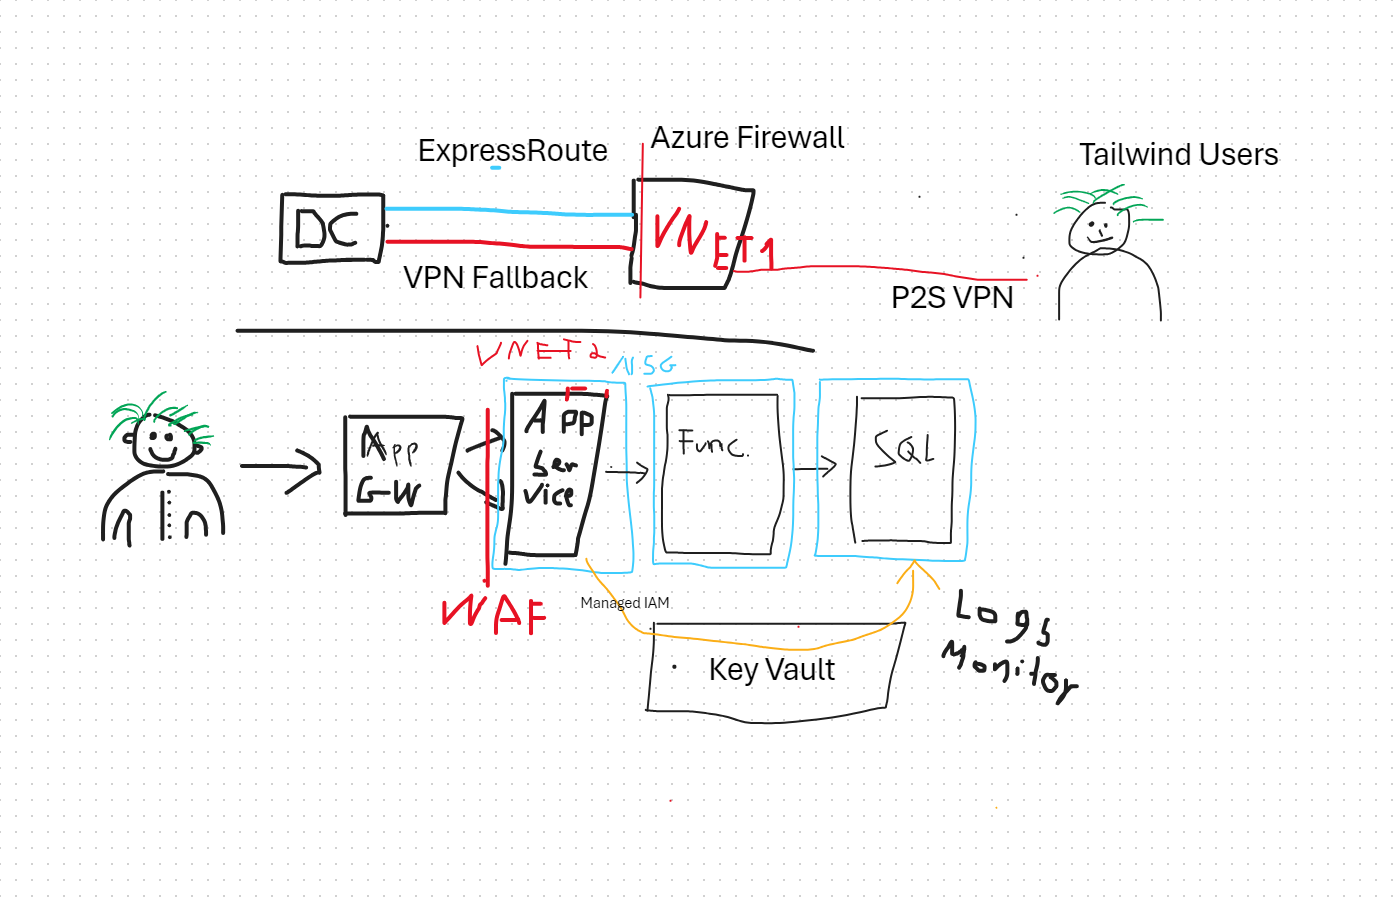 ExpressRoute
Azure Firewall
Tailwind Users
DC
VNET1
VPN Fallback
P2S VPN
VNET2
NSG
App
GW
App
Ser
vice
Func.
SQL
WAF
Managed IAM
Key Vault
Logs
Monitor